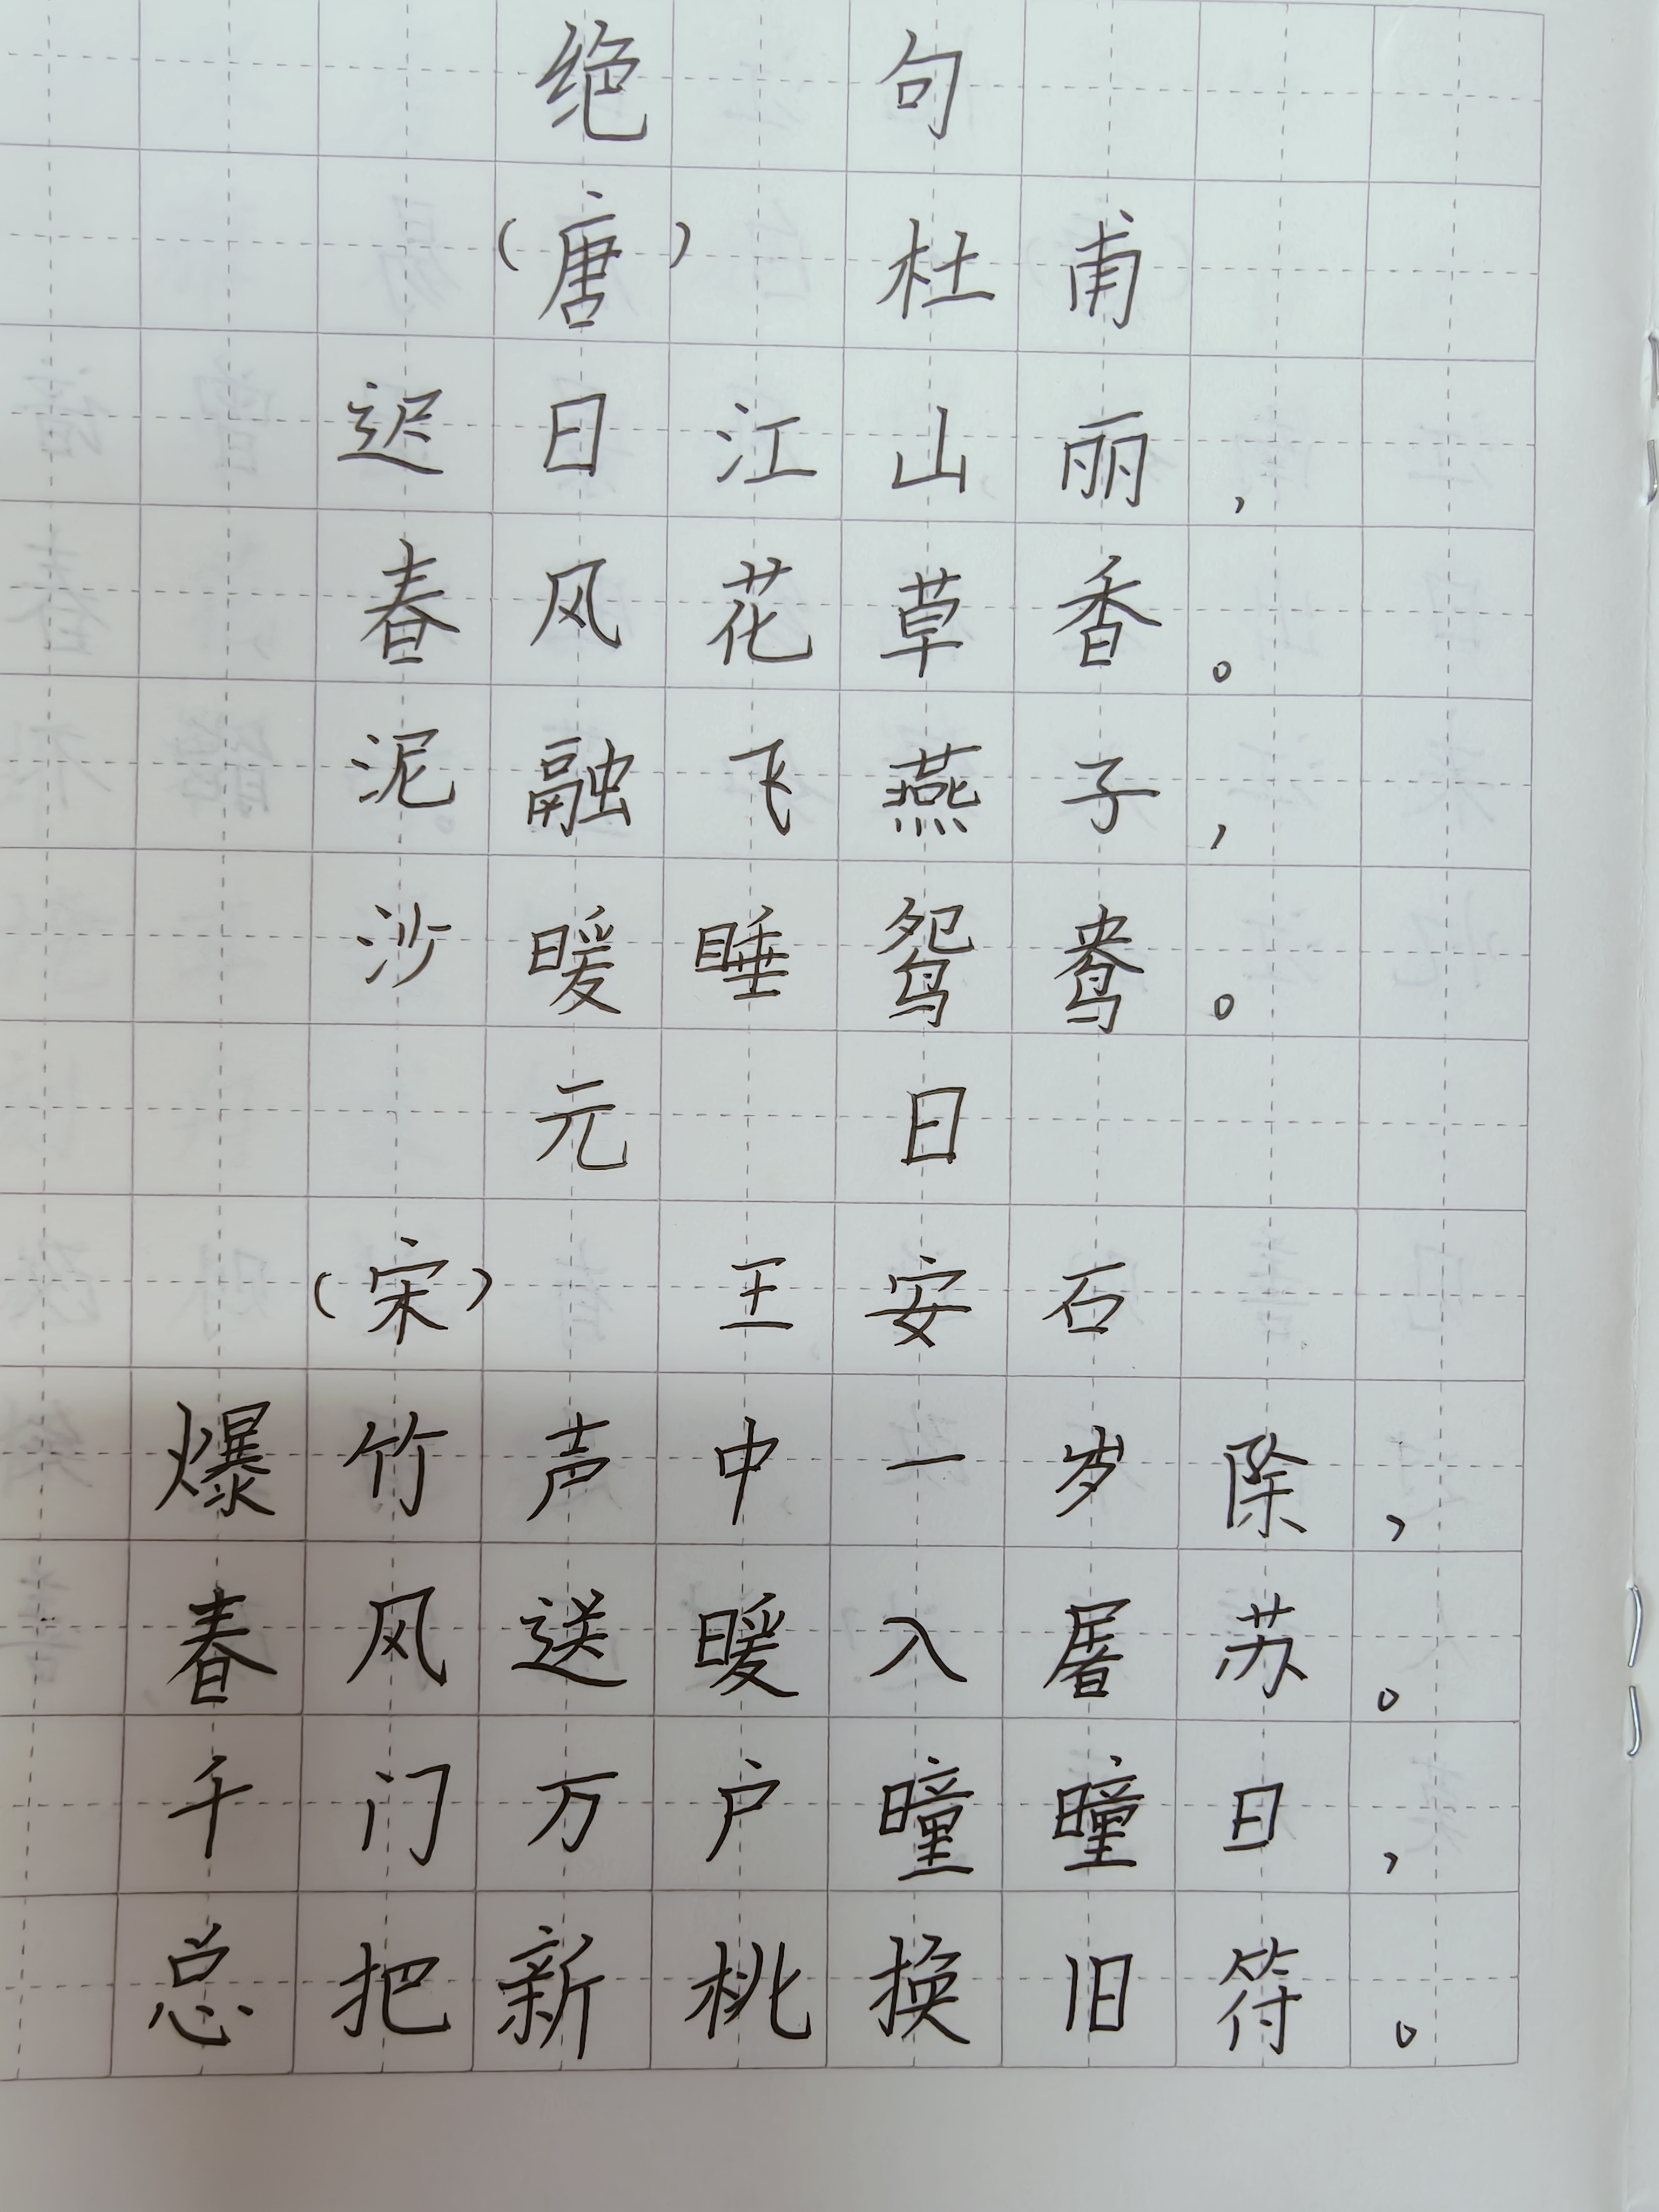 绝句
（唐）杜甫
迟日江山丽，
春风花草香。
泥融飞燕子，
沙暖睡鸳鸯。
元日
（宋）王安石
爆竹声中一岁除，
春风送暖入屠苏。
千门万户曈曈日，
总把新桃换旧符。